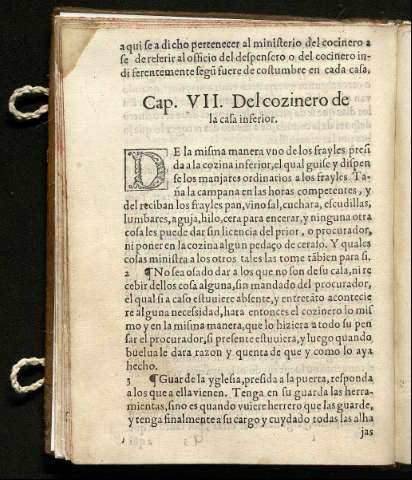 aqui se a dicho pertenecer al ministerio del cocinero a
se de referir al officio del despensero o del cocinero in-
diferentemente segũ fuere de costumbre en cada casa.
Cap. VII. Del cozinero de
la casa inferior.
DE la misma manera vno de los frayles presi
da a la cozina inferior, el qual guise y dispen
se los manjares ordinarios a los frayles Ta-
ña la campana en las horas competentes, y
del reciban los frayles pan, vino sal, cuchara, escudillas,
lumbares, aguja, hilo, cera para encerar, y ninguna otra
cosa les puede dar sin licencia del prior, o procurador,
ni poner en la cozina algun pedaço de
colas ministra a los otros tales las tome tãbien para si.
2 ¶ No sea osado dar a los que no son de su casa, ni re
cebir dellos cosa alguna, sin mandado del procurador,
el qual si a caso estuuiere absente, y entretãto acontecie
re alguna necessidad, hara entonces el cozinero lo mis
mo y en la misma manera, que lo hiziera a todo su pen
sar el procurador, si presente estuuiera, y luego quando
buelua le dara razon y quenta de que y como lo aya
hecho.
3 ¶ Guarde la yglesia, presida a la puerta, responda
a los que a ella vienen. Tenga en su guarda las herra-
mientas, sino es quando vuiere herrero que las guarde,
y tenga finalmente a su cargo y cuydado todas las alha
jas